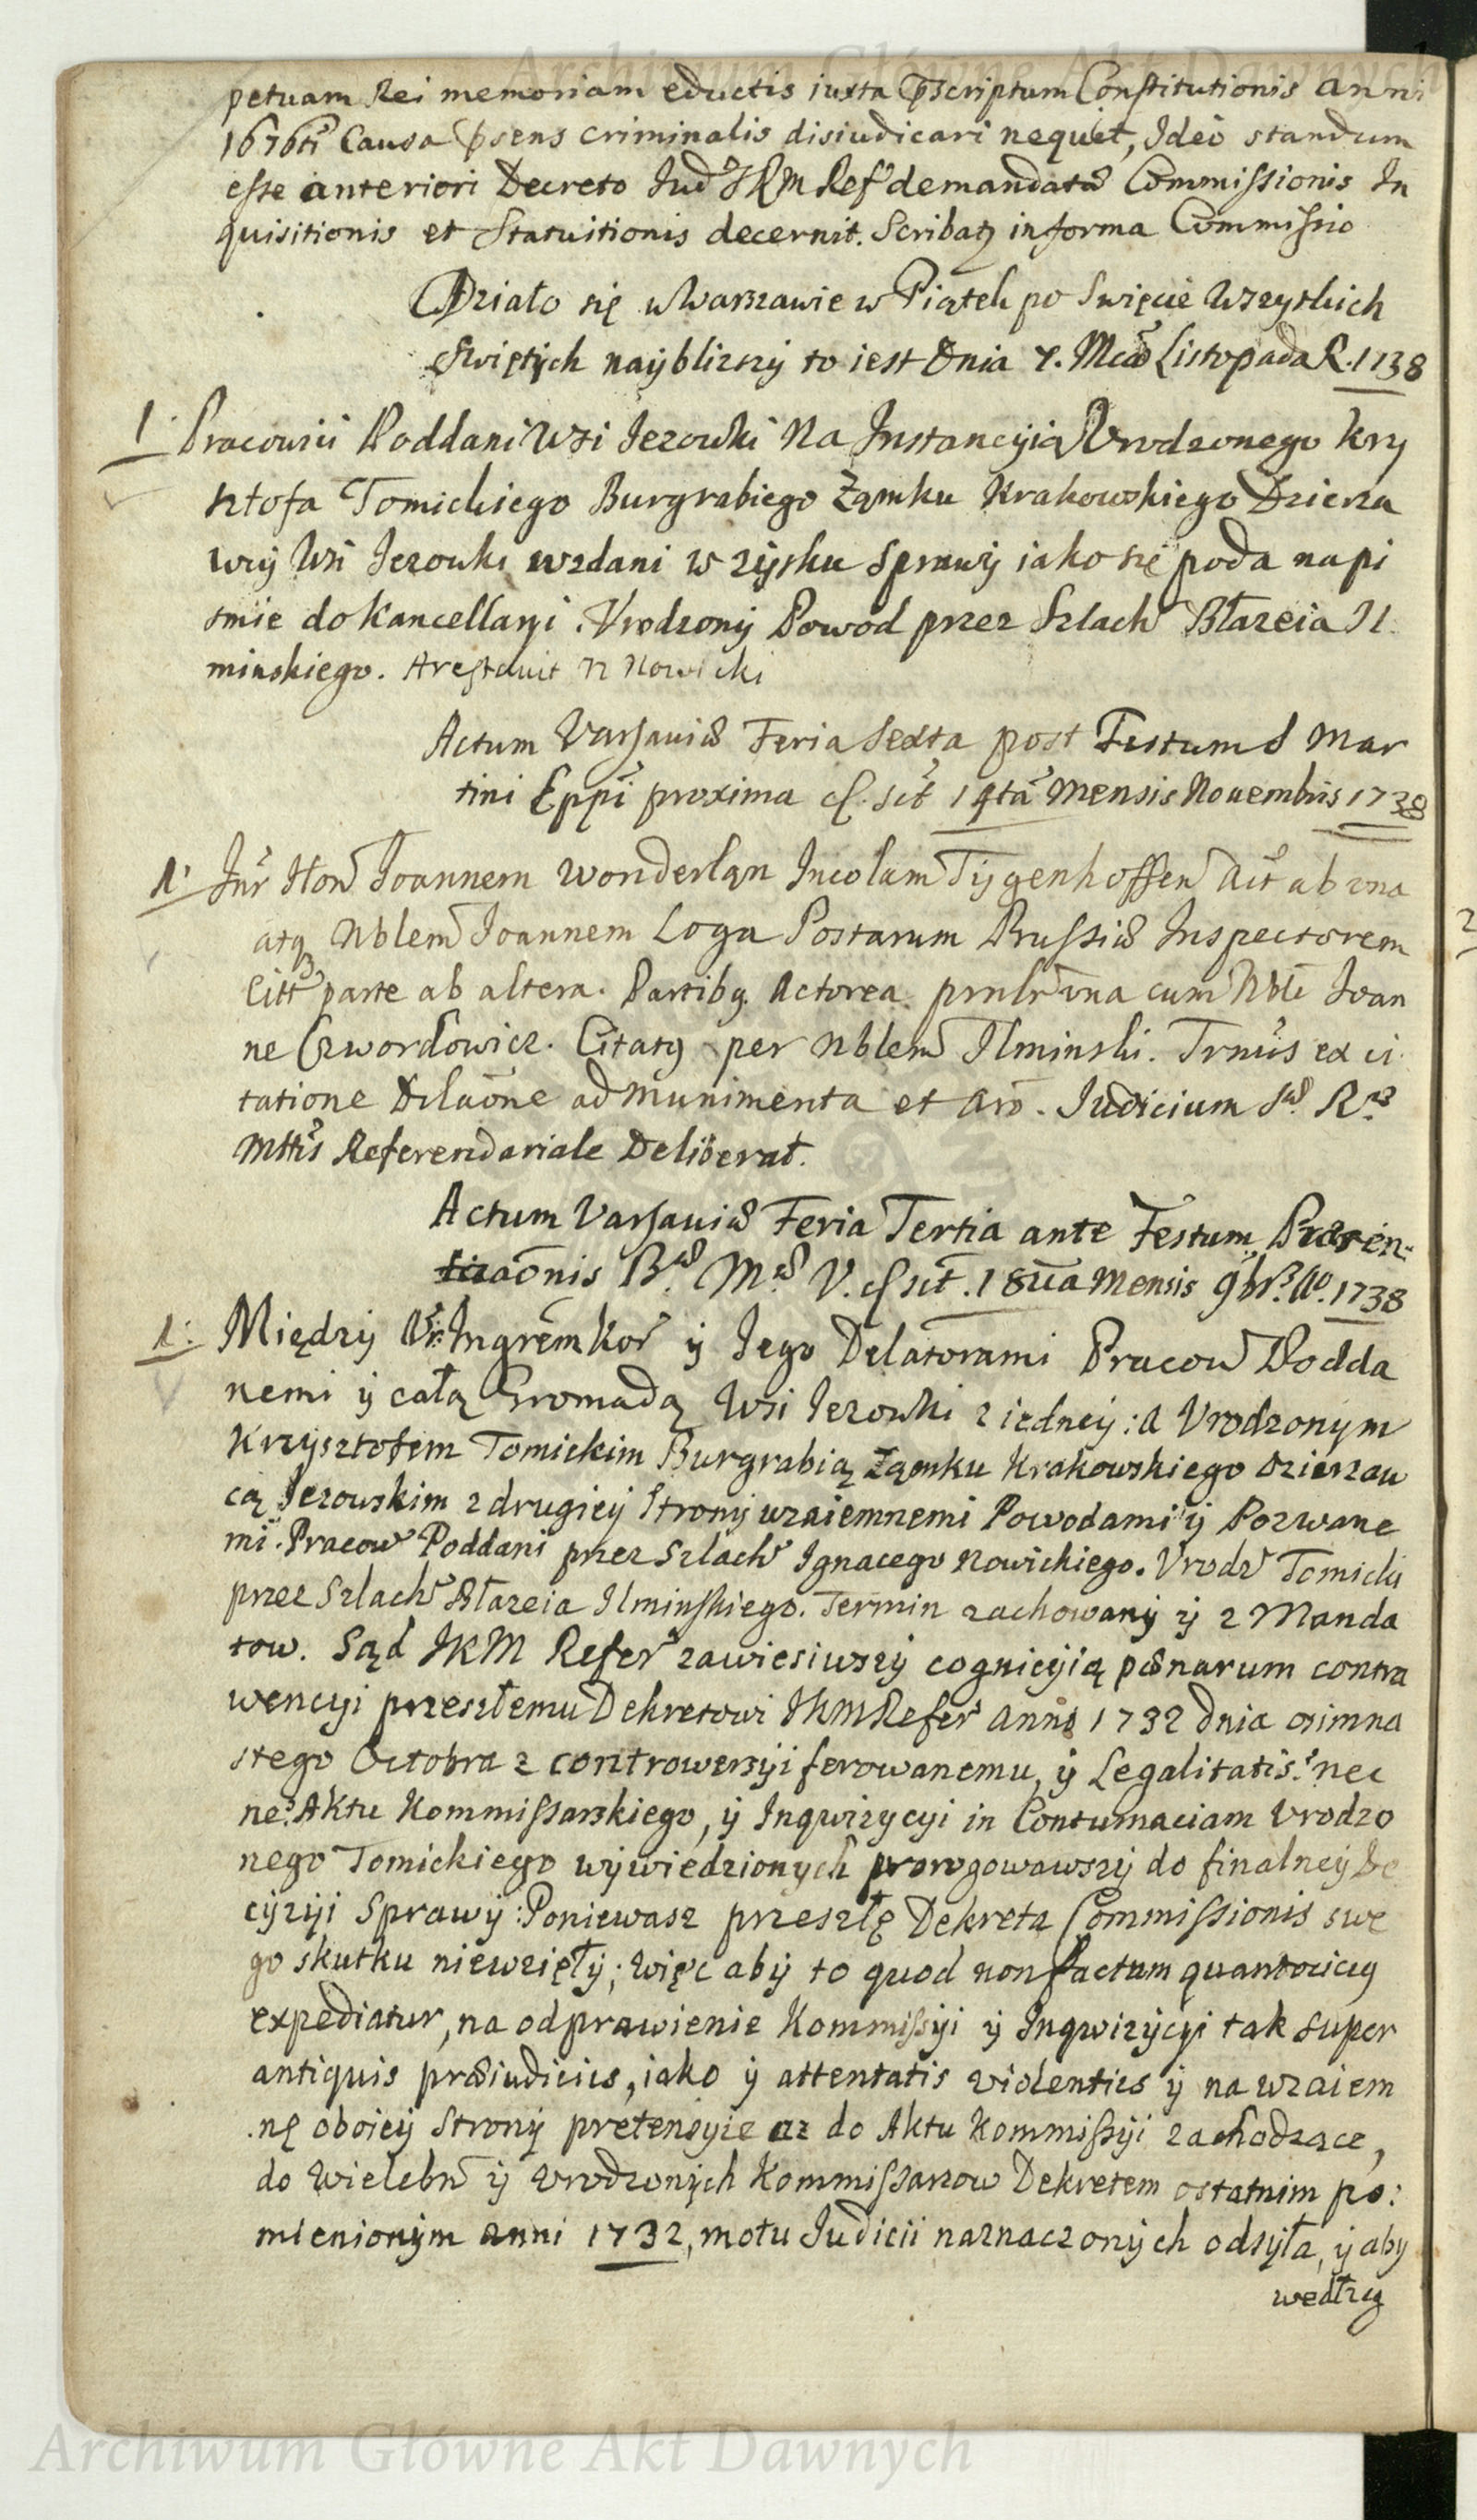 petuam Rei memoriam eductis iuxta p̄scriptum Constitutionis anni
1676ti Causa p̄sens criminalis disiudicari nequit, Ideo standum
esse anteriori Decreto Jud JKM Ref demandatæ Commissionis In
quisitionis et Statuitionis decernit. Scribatq in forma Commissio
Działo się w Warszawie w Piątek po Swięcie Wszystkich
Swiętych naybliszy to iest Dnia 7. Mcā Listopada R. 1738
1. Pracowici Poddani Wsi Jezowki Na Instancyią Vrodzonego Krzy
sztofa Tomickiego Burgrabiego Ząmku Krakowskiego Dzierza
wcy Wsi Jezowki wzdani w zysku Sprawy iako się poda na pi
smie do Kancellaryi. Vrodzony Powod przez Szlach Błazeia Il
minskiego. Arestavit N Nowicki
Actum Varsaviæ Feria Sexta post Festum S Mar
tini Eppi proxima sct 14ta Mensis Novembris 1738
1. Int Hon Joannem Wonderląn Incolam Tygenhoffen Act ab vna
atq Nblem Joannem Loga Postarum Prussiæ Inspectorem
Citt parte ab altera. Partibq. Actorea pnlr vna cum Nble Joan
ne Czwordowicz. Citatq per Nblem Ilminski. Trnus ex ci
tatione Dilaōne ad munimenta et Aro. Judicium Sæ Ræ
Mttis Referendariale Deliberat.
Actum Varsaviæ Feria Tertia ante Festum Præsen-
taōnis Bæ Mæ V. sct. 18va Mensis 9br. Ao. 1738
1. Między Vr: Ingrem Kor y Jego Delatorami Pracow Podda
nemi y całą Gromadą Wsi Jezowki z iedney: a Vrodzonym
Krzysztofem Tomickim Burgrabią Ząmku Krakowskiego Dzierzaw
cą Jezowskim z drugiey Strony wzaiemnemi Powodami y Pozwane
mi. Pracow Poddani przez Szlach Ignacego Nowickiego. Vrodz Tomicki
przez Szlach Błazeia Ilminskiego. Termin zachowany y z Manda
tow. Sąd JKM Refer zawiesiwszy cognicyią pænarum contra
wencyi przeszłemu Dekretowi JKM Refer anni 1732 dnia osimna
stego Octobra z controwersyi ferowanemu, y Legalitatis? nec
ne? Aktu Kommissarskiego, y Inqwizycyi in Contumaciam Vrodzo
nego Tomickiego wywiedzionych prorogowawszy do finalney De
cyzyi Sprawy: Poniewasz przeszłę Dekreta Commissionis swe
go skutku niewzięły; więc aby to quod non factum quantociq
expediatur, na odprawienie Kommissyi y Inqwizycyi tak super
antiquis præiudiciis, iako y attentatis violentiis y na wzaiem
nę oboiey Strony pretensyie az do Aktu Kommissyi zachodzące,
do Wielebn y Vrodzonych Kommissarzow Dekretem ostatnim po:
mienionym anni 1732, motu Judicii naznaczonych odsyła, y aby
według
Archiwum Główne Akt Dawnych